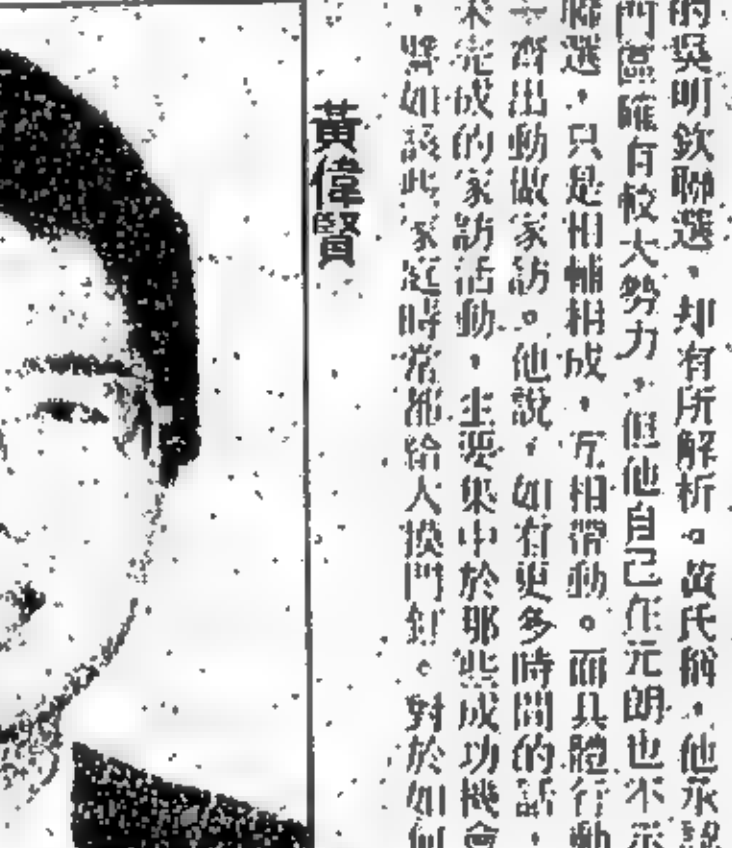 的吳明欽聯選,却有所解析。黃氏稱,他承認
門區確有較大勢力,但他自己在元朗也不示
聯選,只是相輔相成,互相帶動。而具體行動
齊出動做家訪。他說,如有更多時間的話,
未完成的家訪活動,主要集中於那些成功機會
,譬如說此家庭時常都給人摸門釘。對於如何
黃偉賢